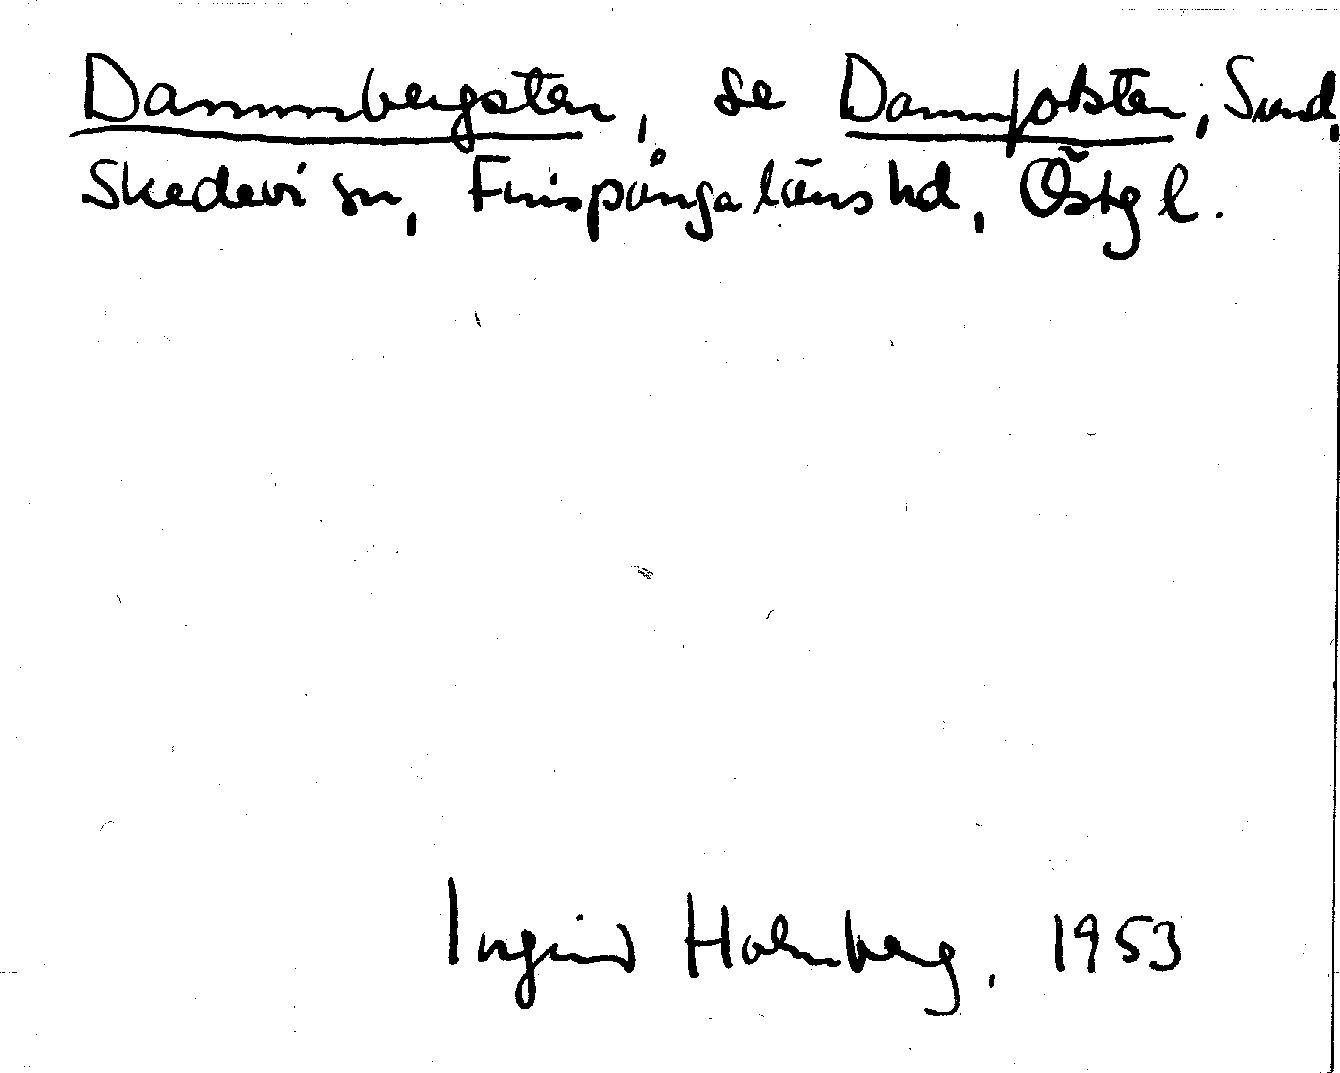 Dammbergsten, se Dammpotsten, Sund,
Skedevi sn, Finspånga läns hd, Östgl.
Ingrid Holmberg, 1953